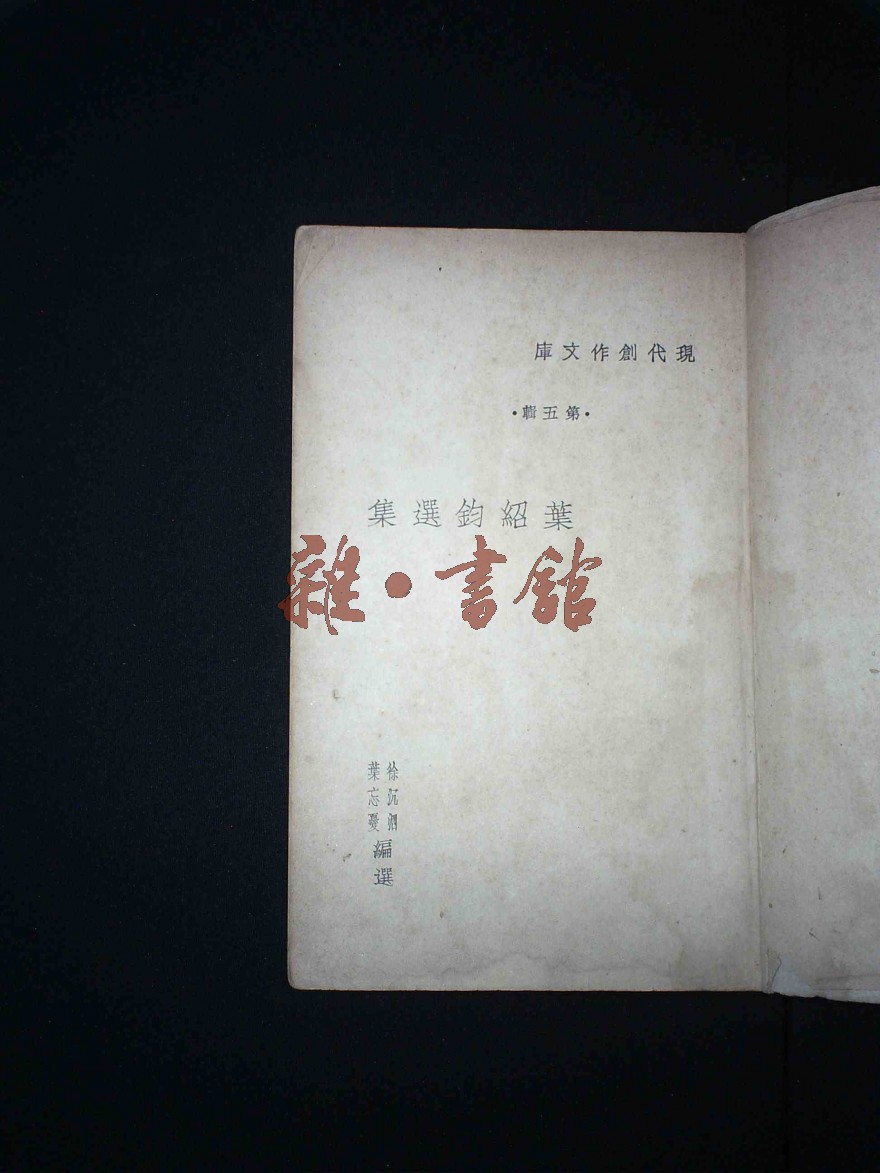 現代創作文庫
•第五輯•
葉紹鈞選集
雜•書館
徐沉泗
葉忘憂
編選